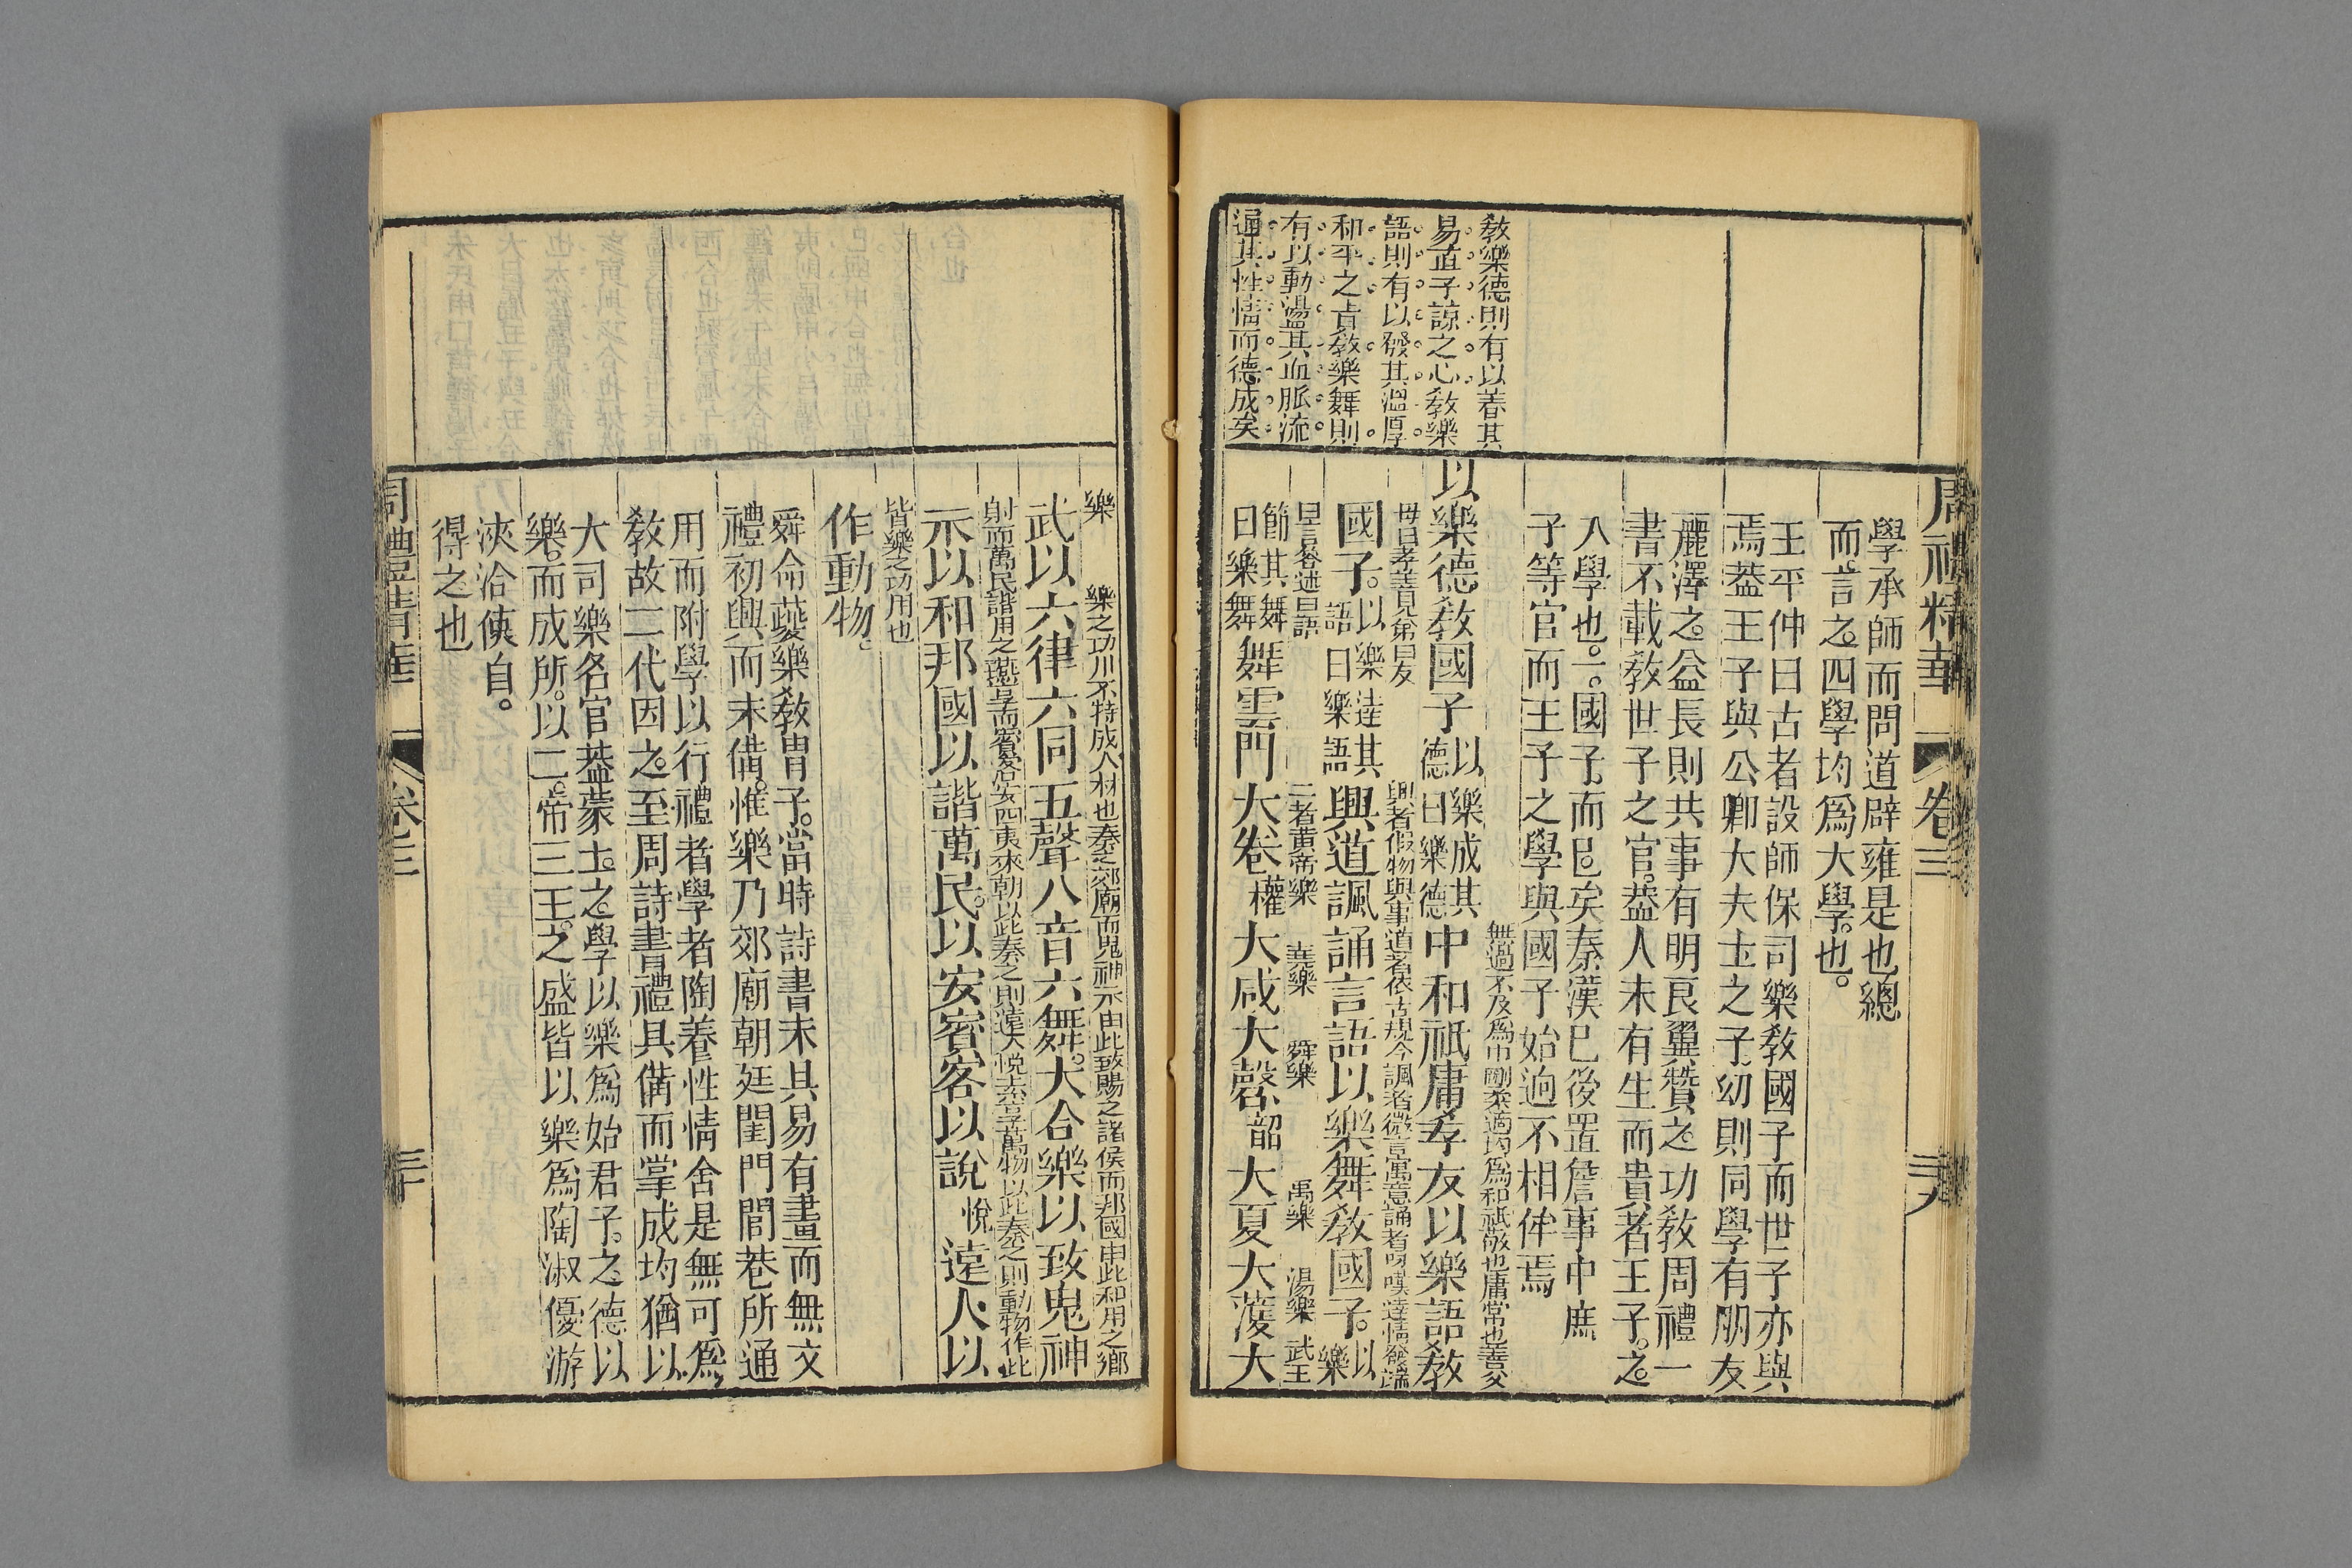 周禮精華
卷三
學承師而問道辟雍是也總
而言之四學均爲大學也
王平仲曰古者設師保司樂教國子而世子亦與
焉葢王子與公卿大夫士之子幼則同學有朋友
麗澤之益長則共事有明良翼贊之功教周禮一
書不載教世子之官葢人未有生而貴者王子之
入學也一國子而已矣秦漢巳後置詹事中庶
子等官而王子之學與國子始逈不相侔焉
教樂德則有以養其
易直子諒之心教樂
語則有以發其溫厚
和平之旨教樂舞則
有以動盪其血脈流
通其性情而德成矣
無過不及爲中剛柔適均爲和祗敬也庸常也善父
以樂德教國子以樂成其德曰樂德中和祗庸孝友以樂語教
母曰孝善兄弟曰友
興者假物興事道者依古規今諷者微言寓意誦者吟嘆達情發端
國子以樂達其語曰樂語興道諷誦言語以樂舞教國子以樂
曰言答述曰語
二者黃帝樂
堯樂
舜樂
禹樂
湯樂
武王
節其舞曰樂舞舞雲門大卷權大咸大磬韶大夏大濩大
樂
樂之功用不特成人材也奏之郊廟而鬼神示由此致賜之諸侯而邦國由此和用之鄉
武以六律六同五聲八音六舞大合樂以致鬼神
射而萬民諧用之燕享而賓客安四夷來朝以此奏之則遠人悅 以此奏之則動物作此
示以和邦國以諧萬民以安賓客以說悅遠人以
皆樂之功用也
作動物
舜命夔樂教胄子當時詩書未具易有畫而無文
禮初興而未備惟樂乃郊廟朝廷閨門閭巷所通
用而附學以行禮者學者陶養性情舍是無可爲
教故二代因之至周詩書禮具備而掌成均猶以
大司樂名官葢蒙士之學以樂爲始君子之德以
樂而成所以二帝三王之盛皆以樂爲陶淑優游
浹洽俟自
得之也
卷三